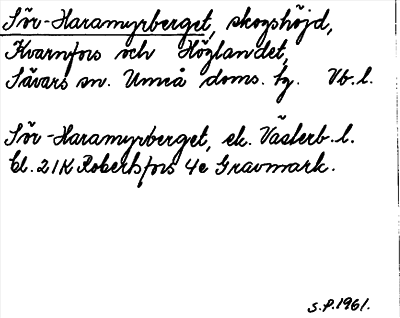 Sör-Haramyrberget, skogshöjd,
Kvarnfors och Höglandet,
Sävars sn. Umeå doms. tg. Vb. l.
Sör-Haramyrberget, ek. Västerb. l.
bl. 21K Robertsfors 4e Gravmark.
S.P. 1961.